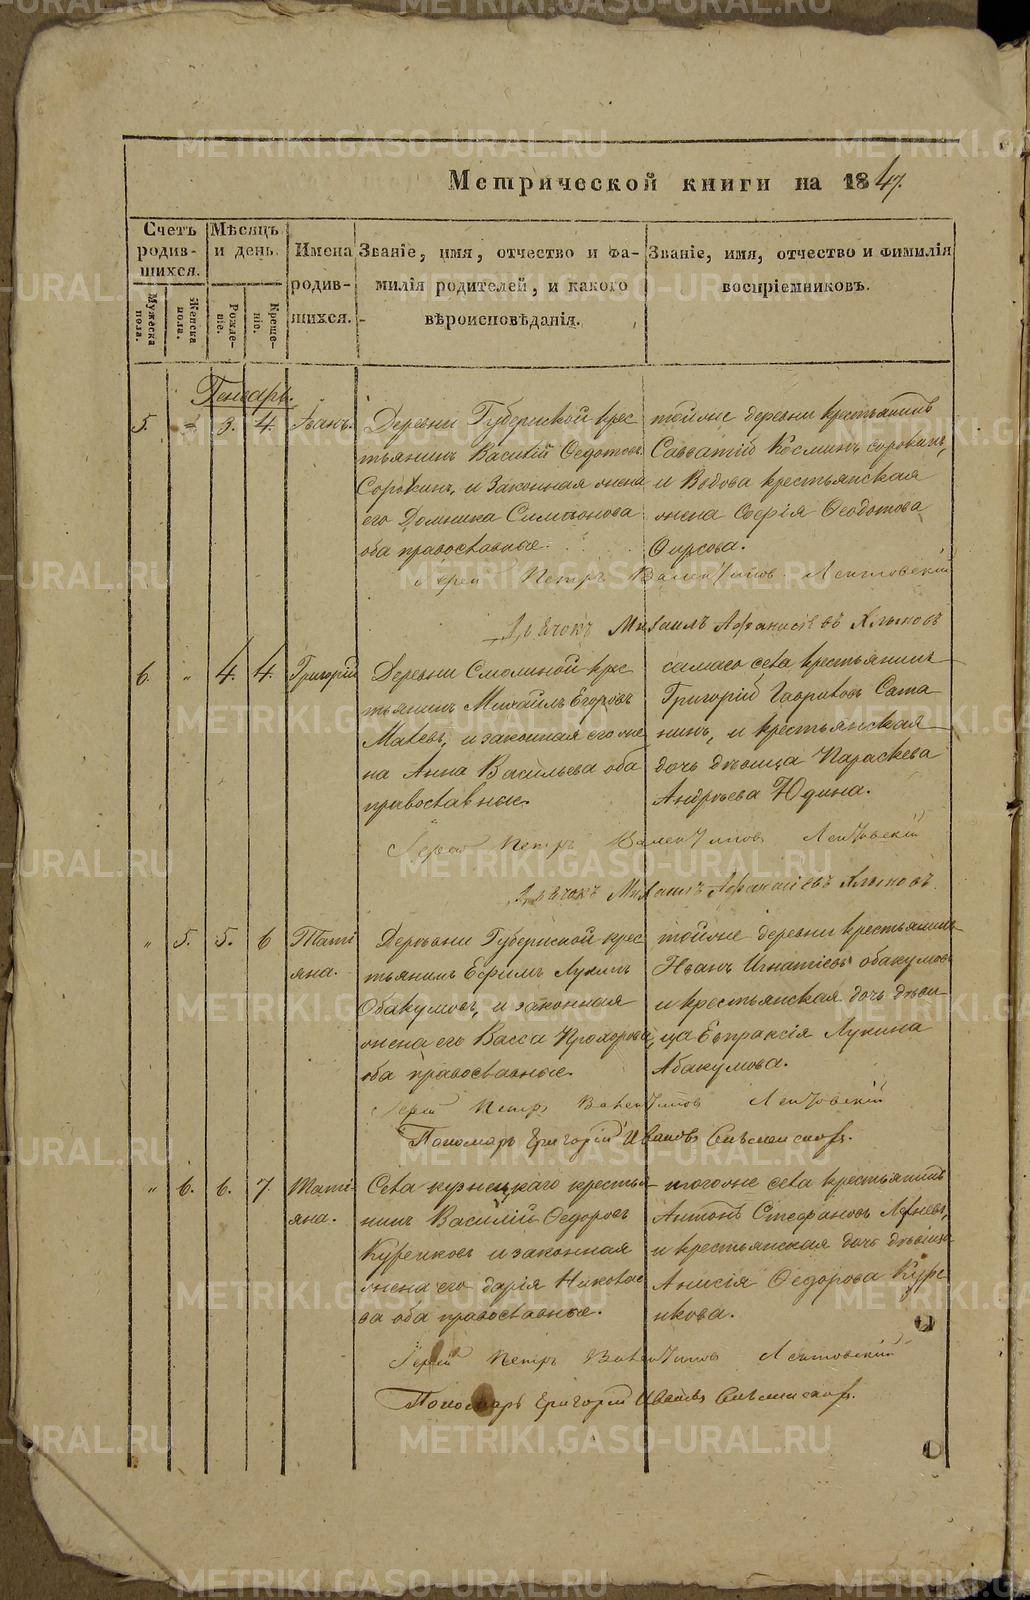 Метрической книги на 1847.
Счетъ родив- шихся.
Мѣсяцъ и день.
Имена родив- шихся.
Званіе, имя, отчество и фа-
милія родителей, и какого
вѣроисповѣданія.
Званіе, имя, отчество и фимилія
воспріемниковъ.
Мужеска пола.
Женска пола.
Рожде- ніе.
Креще- ніе.
Генварь.
5. " 3. 4. Іванъ.
Деревни Губернской крес
тьянинъ Василій Ѳедотовъ
Сорокинъ, и законная жена
его Домника Симионова
оба православные.
тойже деревни крестьянинъ
Савватій Косминъ Сорокинъ,
и Вдова крестьянская
жена Софія Ѳеодотова
Ѳирсова.
Іерей Петръ Валентиновъ Лентовскій
Дьячокъ Михаилъ Афанасіевъ Хлыновъ
6. " 4. 4. Григорій
Деревни Смолиной крес
тьянинъ Михайлъ Егоровъ
и законная его же
на Анна Васильева оба
православные.
самаго села крестьянинъ
Григорій Гавриловъ Сата
нинъ, и крестьянская
дочь дѣвица Параскева
Андреева Юдина.
Іерей Петръ Валентиновъ Лентовскій
Дьячокъ Михаилъ Афанасіевъ Хлыновъ
" 5. 5. 6 Таті
яна.
Деревни Губернской крес
тьянинъ Ефимъ Лукинъ
Обакумовъ, и законная
жена его Васса Прохорова,
оба православные.
тойже деревни крестьянинъ
Иванъ Игнатіевъ Обакумовъ
и крестьянская дочь дѣви
ца Евпраксія Лукина
Абакумова.
Іерей Петръ Валентиновъ Лентовскій
Пономарь Григорій Ивановъ
" 6. 6. 7. Таті-
яна.
Села кузнецкаго крестья-
нинъ Василій Ѳедоровъ
Куренковъ и законная
жена его Дарія Николае
ва оба православные.
тогоже села крестьянинъ
Антонъ Стефановъ
и крестьянская дочь дѣвица
Анисія Ѳедорова Куре
нкова.
Іерей Петръ Валентиновъ Лентовскій
Пономарь Григорій Ивановъ
METRIKI.GASO-URAL.RU